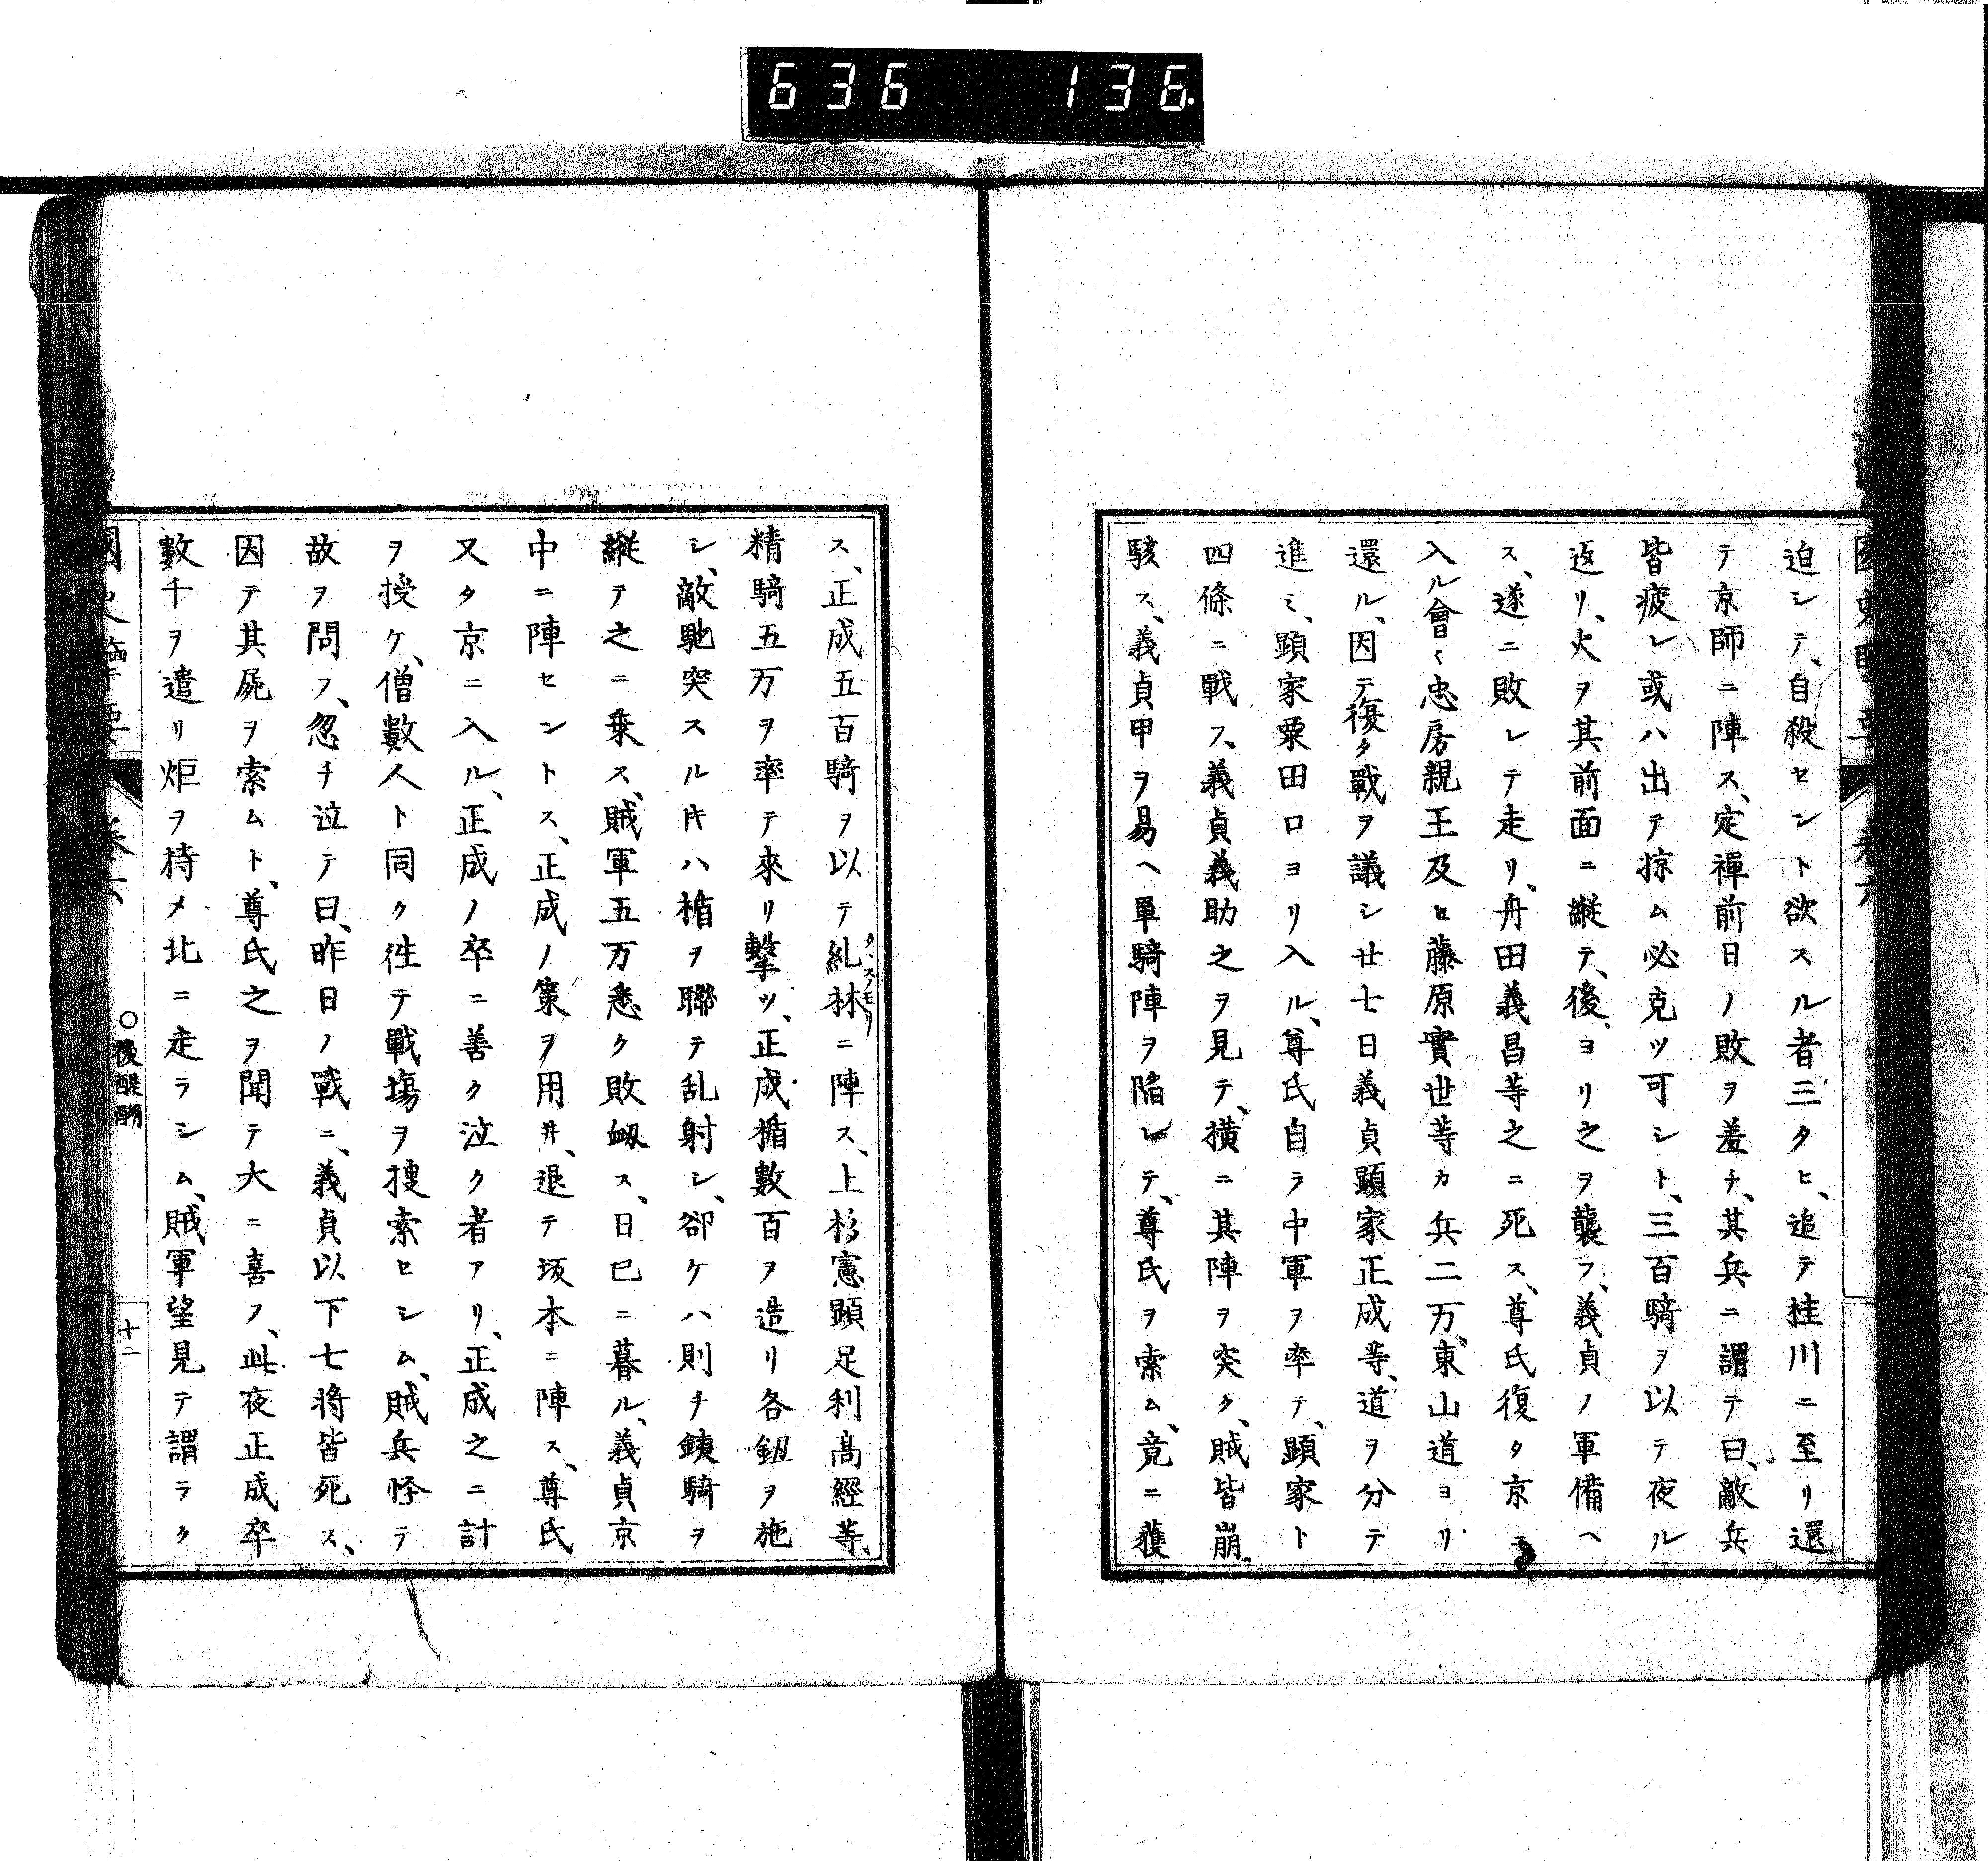 636 136
迫シテ、自殺セント欲スル者三タヒ、追テ桂川ニ至リ還
テ京師ニ陣ス、定禪前日ノ敗ヲ羞チ、其兵ニ謂テ曰、敵兵
皆疲レ或ハ出テ掠ム必克ツ可シト、三百騎ヲ以テ夜ル
返リ、火ヲ其前面ニ縱テ、後ヨリ之ヲ襲フ、義貞ノ軍備ヘ
ス、遂ニ敗レテ走リ、舟田義昌等之ニ死ス、尊氏復タ京ニ
入ル會〻忠房親王及ヒ藤原實世等カ兵二万、東山道ヨリ
還ル、因テ復タ戰ヲ議シ廿七日義貞顯家正成等、道ヲ分テ
進ミ、顯家粟田口ヨリ入ル、尊氏自ラ中軍ヲ率テ、顯家ト
四條ニ戰フ、義貞義助之ヲ見テ、横ニ其陣ヲ突ク、賊皆崩
駭ス、義貞甲ヲ易ヘ單騎陣ヲ陷レテ、尊氏ヲ索ム、竟ニ獲
ス、正成五百騎ヲ以テ糺林ニ陣ス、上杉憲顯足利高經等、
精騎五万ヲ率テ來リ撃ツ、正成楯數百ヲ造リ各鈕ヲ施
シ、敵馳突スル𪜈ハ楯ヲ聯テ乱射シ、卻ケハ則チ鐵騎ヲ
縱テ之ニ乗ス、賊軍五万悉ク敗衂ス、日已ニ暮ル、義貞京
中ニ陣セントス、正成ノ策ヲ用井、退テ坂本ニ陣ス、尊氏
又タ京ニ入ル、正成ノ卒ニ善ク泣ク者アリ、正成之ニ計
ヲ授ケ、僧數人ト同ク徃テ戰塲ヲ搜索セシム、賊兵怪テ
故ヲ問フ、忽チ泣テ曰、昨日ノ戰ニ、義貞以下七将皆死ス、
因テ其屍ヲ索ムト、尊氏之ヲ聞テ大ニ喜フ、此夜正成卒
數千ヲ遣リ炬ヲ持メ北ニ走ラシム、賊軍望見テ謂ラク
○後醍醐
十二